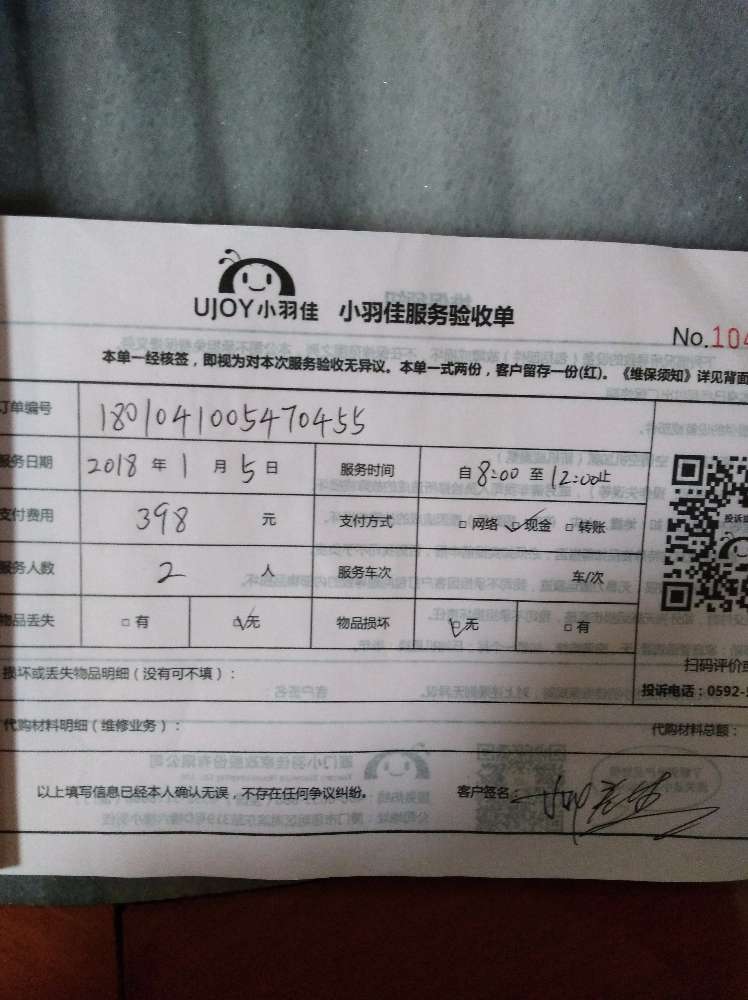 UJOY小羽佳 小羽佳服务验收单
No.104
本单一经核签，即视为对本次服务验收无异议。本单一式两份，客户留存一份(红)。《维保须知》详见背面
订单编号 1801041005470455
服务日期 2018 年 1 月 5 日 服务时间 自 8:00 至 12:00止
支付费用 398 元 支付方式 □ 网络 ☑ 现金 □ 转账
服务人数 2 人 服务车次 车/次
物品丢失 □ 有 ☑ 无 物品损坏 ☑ 无 □ 有
损坏或丢失物品明细（没有可不填）：
扫码评价或
投诉电话：0592-5
代购材料明细（维修业务）：
代购材料总额：
以上填写信息已经本人确认无误，不存在任何争议纠纷。 客户签名：